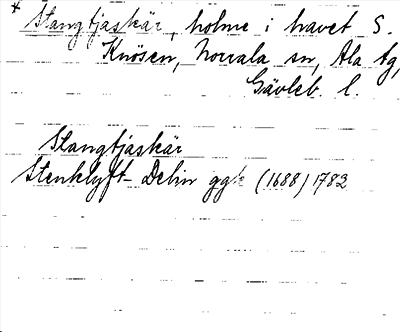 * Slangtjäskär, holme i havet S.
Knösen, Norrala sn, Ala tg,
Gävleb. l.
Slangtjäskär
Stenklyft- Delin ggk (1688) 1782